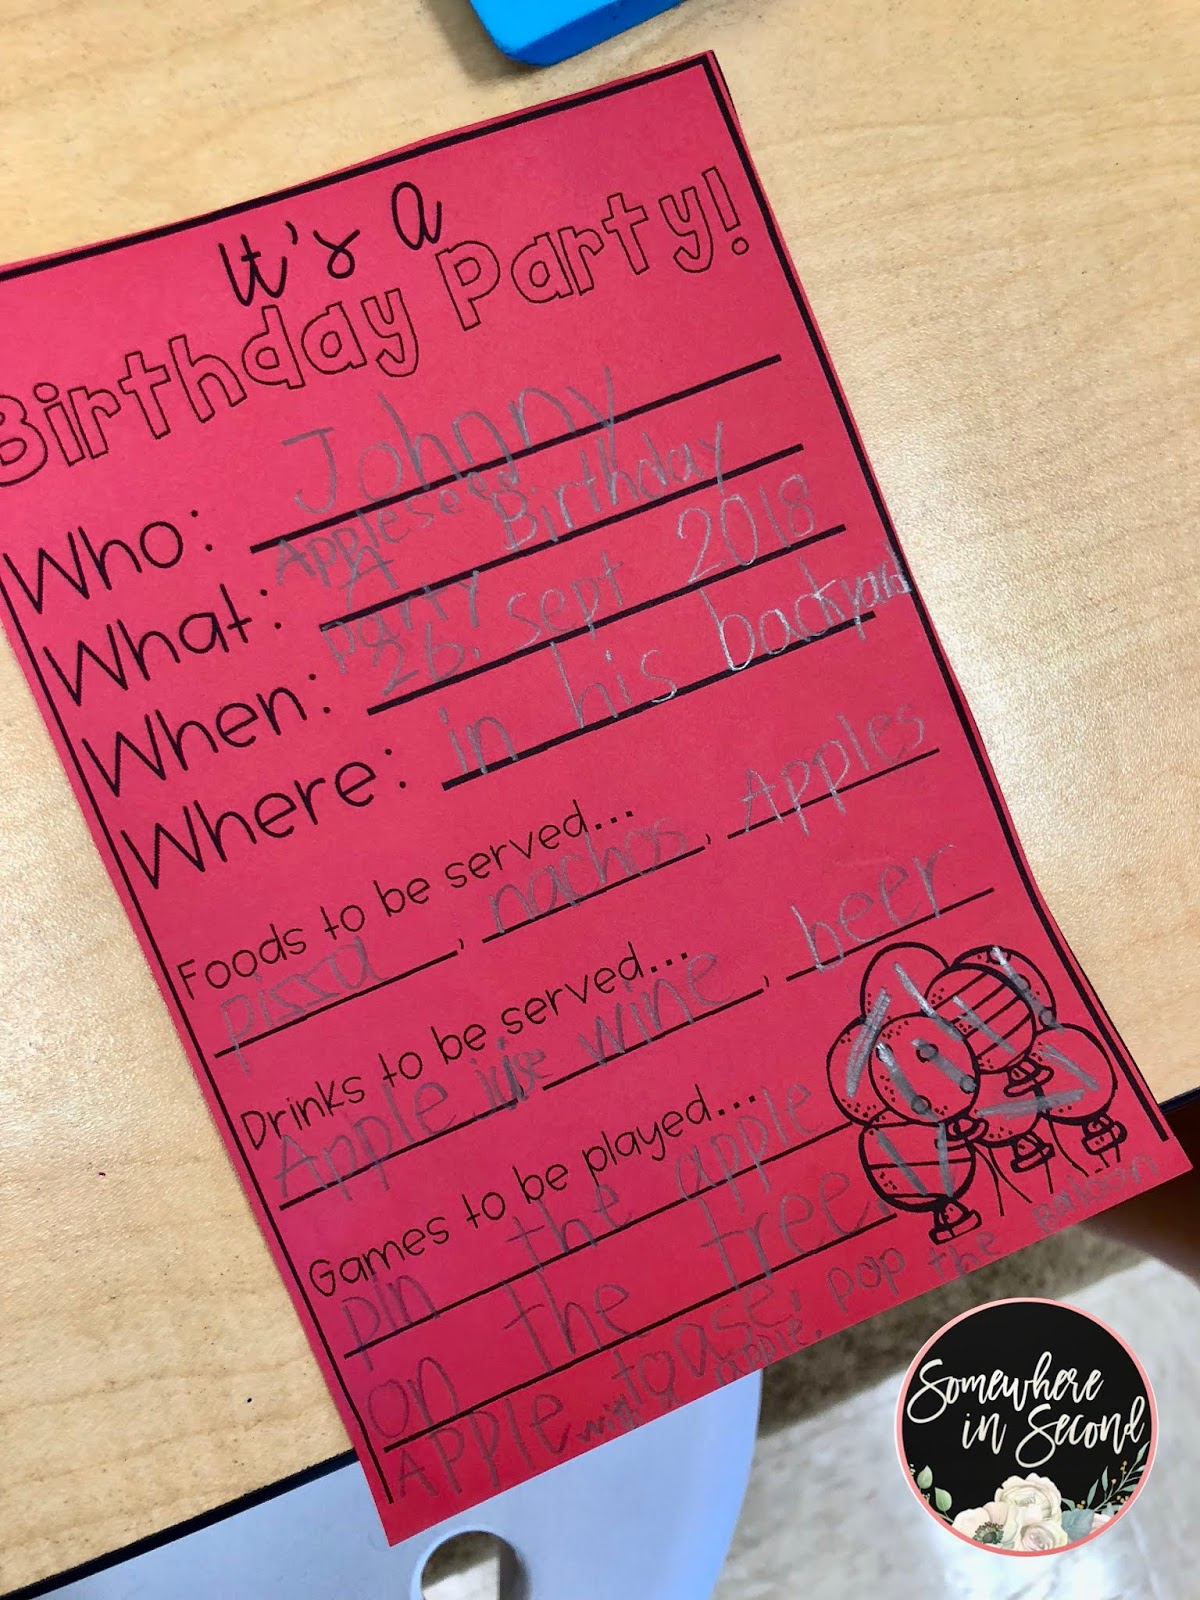 It's a
Birthday Party!
Who: Johnny
Appleseed
What: A Birthday
party
When: 26. sept 2018
Where: in his backyard
Foods to be served...
pizza, nachos, Apples
Drinks to be served...
Apple juse, wine, beer
Games to be played...
pin the apple
on the tree,
Apple toase, pop the Balloon
with a apple.
Somewhere
in Second